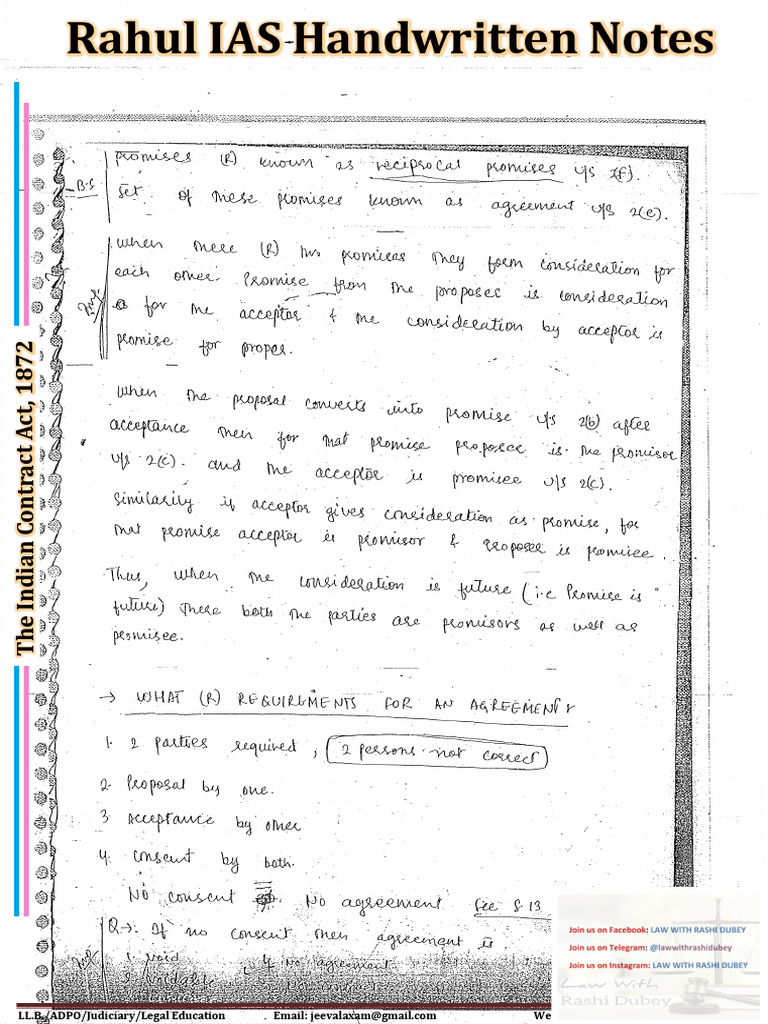 Rahul IAS Handwritten Notes
The Indian Contract Act, 1872
promises (R) known as reciprocal promises u/s 2(f).
B.S
set of these promises known as agreement u/s 2(e).
When there (R) two promises they form consideration for
each other. Promise from the proposer is consideration
for the acceptor & the consideration by acceptor is
promise for proper.
When the proposal converts into promise u/s 2(b) after
acceptance then for that promise proposer is the promisor
u/s 2(c). and the acceptor is promisee u/s 2(c).
Similarily if acceptor gives consideration as promise, for
that promise acceptor is promisor & proposer is promisee.
Thus, when the consideration is future (i.e Promise is
future) there both the parties are promisors as well as
promisee.
→ WHAT (R) REQUIREMENTS FOR AN AGREEMENT
1. 2 parties required, 2 persons not correct
2. Proposal by one.
3. Acceptance by other
4. Consent by both.
No consent No agreement See S 13
Q→: If no consent then agreement is
1 void 4 No agreement
2 voidable
Join us on Facebook: LAW WITH RASHI DUBEY
Join us on Telegram: @lawwithrashidubey
Join us on Instagram: LAW WITH RASHI DUBEY
Law With
Rashi Dubey
LL.B./ADPO/Judiciary/Legal Education . Email: jeevalaxam@gmail.com We